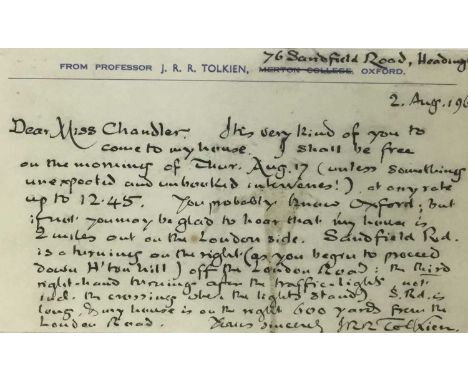 76 Sandfield Road, Heading
FROM PROFESSOR J. R. R. TOLKIEN, MERTON COLLEGE, OXFORD.
2. Aug. 196
Dear Miss Chandler. It is very kind of you to
come to my house. I shall be free
on the morning of Thur. Aug. 17 (unless something
unexpected and unbooked intervenes!), at any rate
up to 12.45. You probably know Oxford; but
if not you may be glad to hear that my house is
2 miles out on the London side. Sandfield Rd.
is a turning on the right (as you begin to proceed
down H'ton hill) off the London Road: the third
right-hand turning after the traffic-lights not
incl. the crossing where the lights stand). S. Rd. is
long, & my house is on the right 600 yards from the
London Road. Yours sincerely JRR Tolkien.